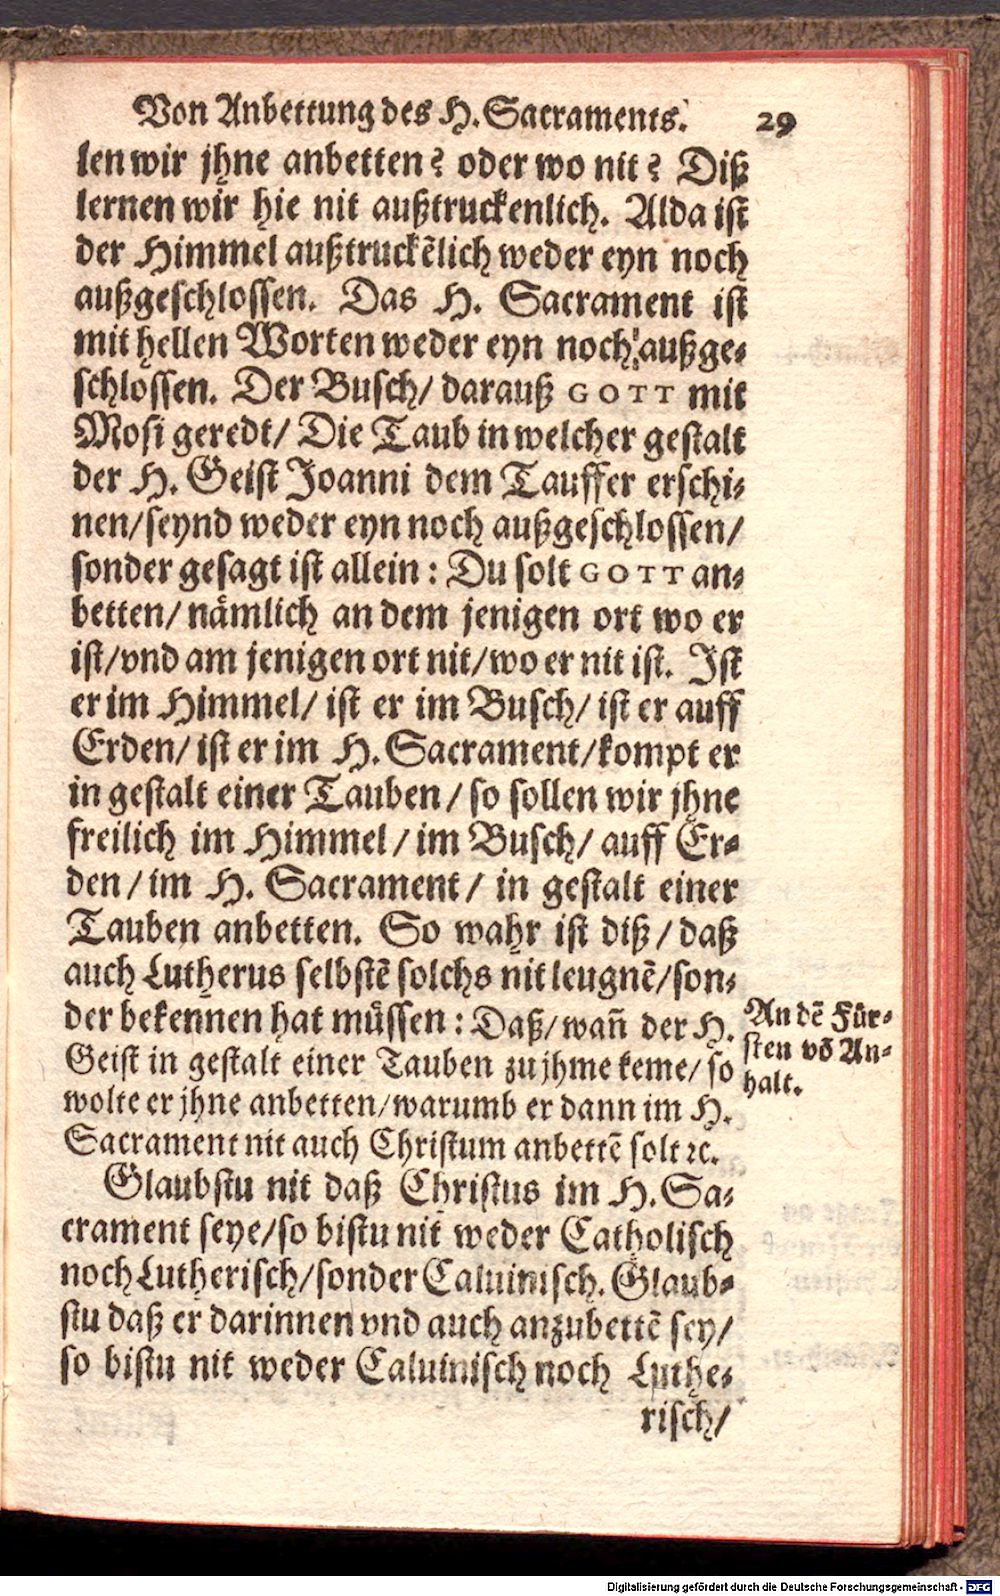 Von Anbettung des H. Sacraments. 29
len wir jhne anbetten? oder wo nit? Diß
lernen wir hie nit außtruckenlich. Alda ist
der Himmel außtruckẽlich weder eyn noch
außgeschlossen. Das H. Sacrament ist
mit hellen Worten weder eyn noch außge-
schlossen. Der Busch/ darauß GOTT mit
Mosi geredt/ Die Taub in welcher gestalt
der H. Geist Joanni dem Tauffer erschi-
nen/seynd weder eyn noch außgeschlossen/
sonder gesagt ist allein: Du solt GOTT an-
betten/ nämlich an dem jenigen ort wo er
ist/vnd am jenigen ort nit/wo er nit ist. Ist
er im Himmel/ ist er im Busch/ ist er auff
Erden/ ist er im H. Sacrament/kompt er
in gestalt einer Tauben/ so sollen wir jhne
freilich im Himmel/ im Busch/ auff Er-
den/ im H. Sacrament/ in gestalt einer
Tauben anbetten. So wahr ist diß/ daß
auch Lutherus selbstẽ solchs nit leugnẽ/son-
der bekennen hat müssen: Daß/wañ der H.
Geist in gestalt einer Tauben zu jhme keme/ so
wolte er jhne anbetten/warumb er dann im H.
Sacrament nit auch Christum anbettẽ solt ꝛc.
An dẽ Für-
sten võ An-
halt.
Glaubstu nit daß Christus im H. Sa-
crament seye/so bistu nit weder Catholisch
noch Lutherisch/sonder Caluinisch. Glaub-
stu daß er darinnen vnd auch anzubettẽ sey/
so bistu nit weder Caluinisch noch Luthe-
risch/
Digitalisierung gefördert durch die Deutsche Forschungsgemeinschaft - DFG